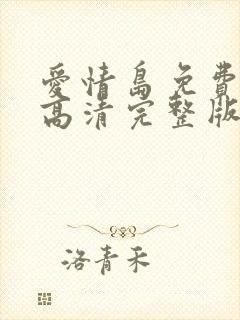 愛情島免費
高清完整版
洛青禾